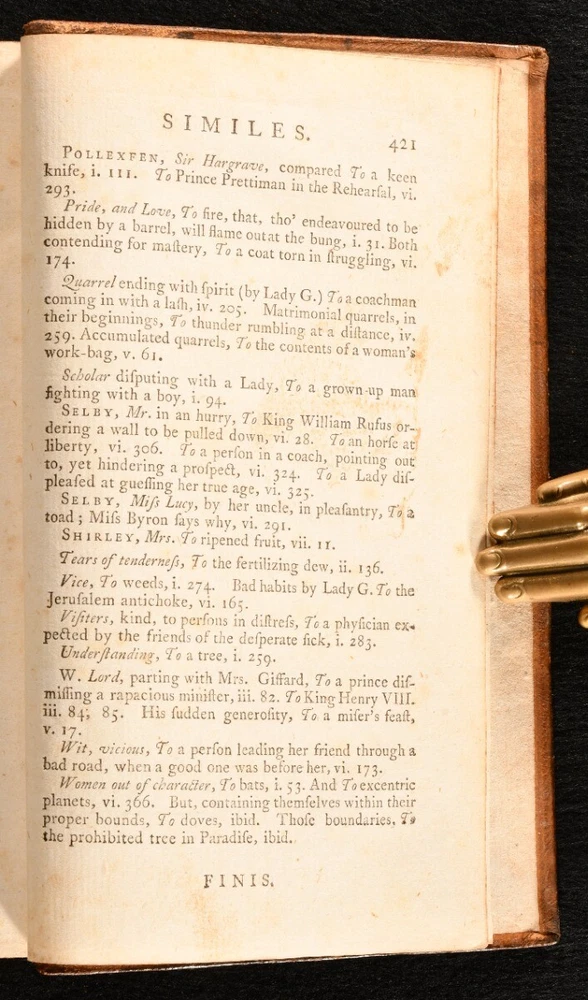 SIMILES. 421
POLLEXFEN, Sir Hargrave, compared To a keen
knife, i. 111. To Prince Prettiman in the Rehearſal, vi.
293.
Pride, and Love, To fire, that, tho' endeavoured to be
hidden by a barrel, will flame out at the bung, i. 31. Both
contending for maſtery, To a coat torn in ſtruggling, vi.
174.
Quarrel ending with ſpirit (by Lady G.) To a coachman
coming in with a laſh, iv. 205. Matrimonial quarrels, in
their beginnings, To thunder rumbling at a diſtance, iv.
259. Accumulated quarrels, To the contents of a woman's
work-bag, v. 61.
Scholar diſputing with a Lady, To a grown-up man
fighting with a boy, i. 94.
SELBY, Mr. in an hurry, To King William Rufus or-
dering a wall to be pulled down, vi. 28. To an horſe at
liberty, vi. 306. To a perſon in a coach, pointing out
to, yet hindering a proſpect, vi. 324. To a Lady diſ-
pleaſed at gueſſing her true age, vi. 325.
SELBY, Miſs Lucy, by her uncle, in pleaſantry, To a
toad; Miſs Byron ſays why, vi. 291.
SHIRLEY, Mrs. To ripened fruit, vii. 11.
Tears of tenderneſs, To the fertilizing dew, ii. 136.
Vice, To weeds, i. 274. Bad habits by Lady G. To the
Jeruſalem antichoke, vi. 165.
Viſiters, kind, to perſons in diſtreſs, To a phyſician ex-
pected by the friends of the deſperate ſick, i. 283.
Underſtanding, To a tree, i. 259.
W. Lord, parting with Mrs. Giffard, To a prince diſ-
miſſing a rapacious miniſter, iii. 82. To King Henry VIII.
iii. 84, 85. His ſudden generoſity, To a miſer's feaſt,
v. 17.
Wit, vicious, To a perſon leading her friend through a
bad road, when a good one was before her, vi. 173.
Women out of character, To bats, i. 53. And To excentric
planets, vi. 366. But, containing themſelves within their
proper bounds, To doves, ibid. Thoſe boundaries, To
the prohibited tree in Paradiſe, ibid.
FINIS.